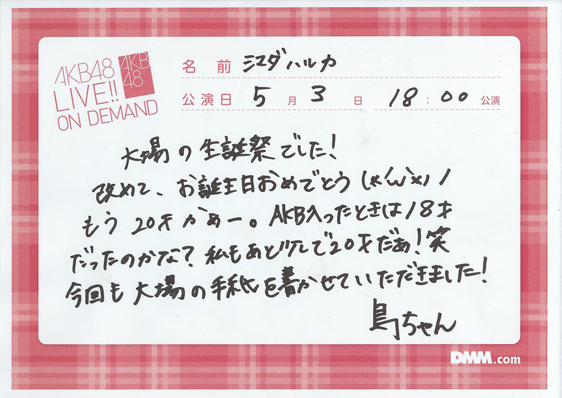 AKB48
LIVE!!
ON DEMAND
AKB
48
名前 江ダハルカ
公演日 5月3日 18:00公演
大場の生誕祭でした!
改めて、お誕生日おめでとう(*'ω'*)ノ
もう20才かぁー。AKB入ったときは18才
だったのかな?私もあと少しで20才だぁ!笑
今回も大場の手紙を書かせていただきました!
島ちゃん
DMM.com